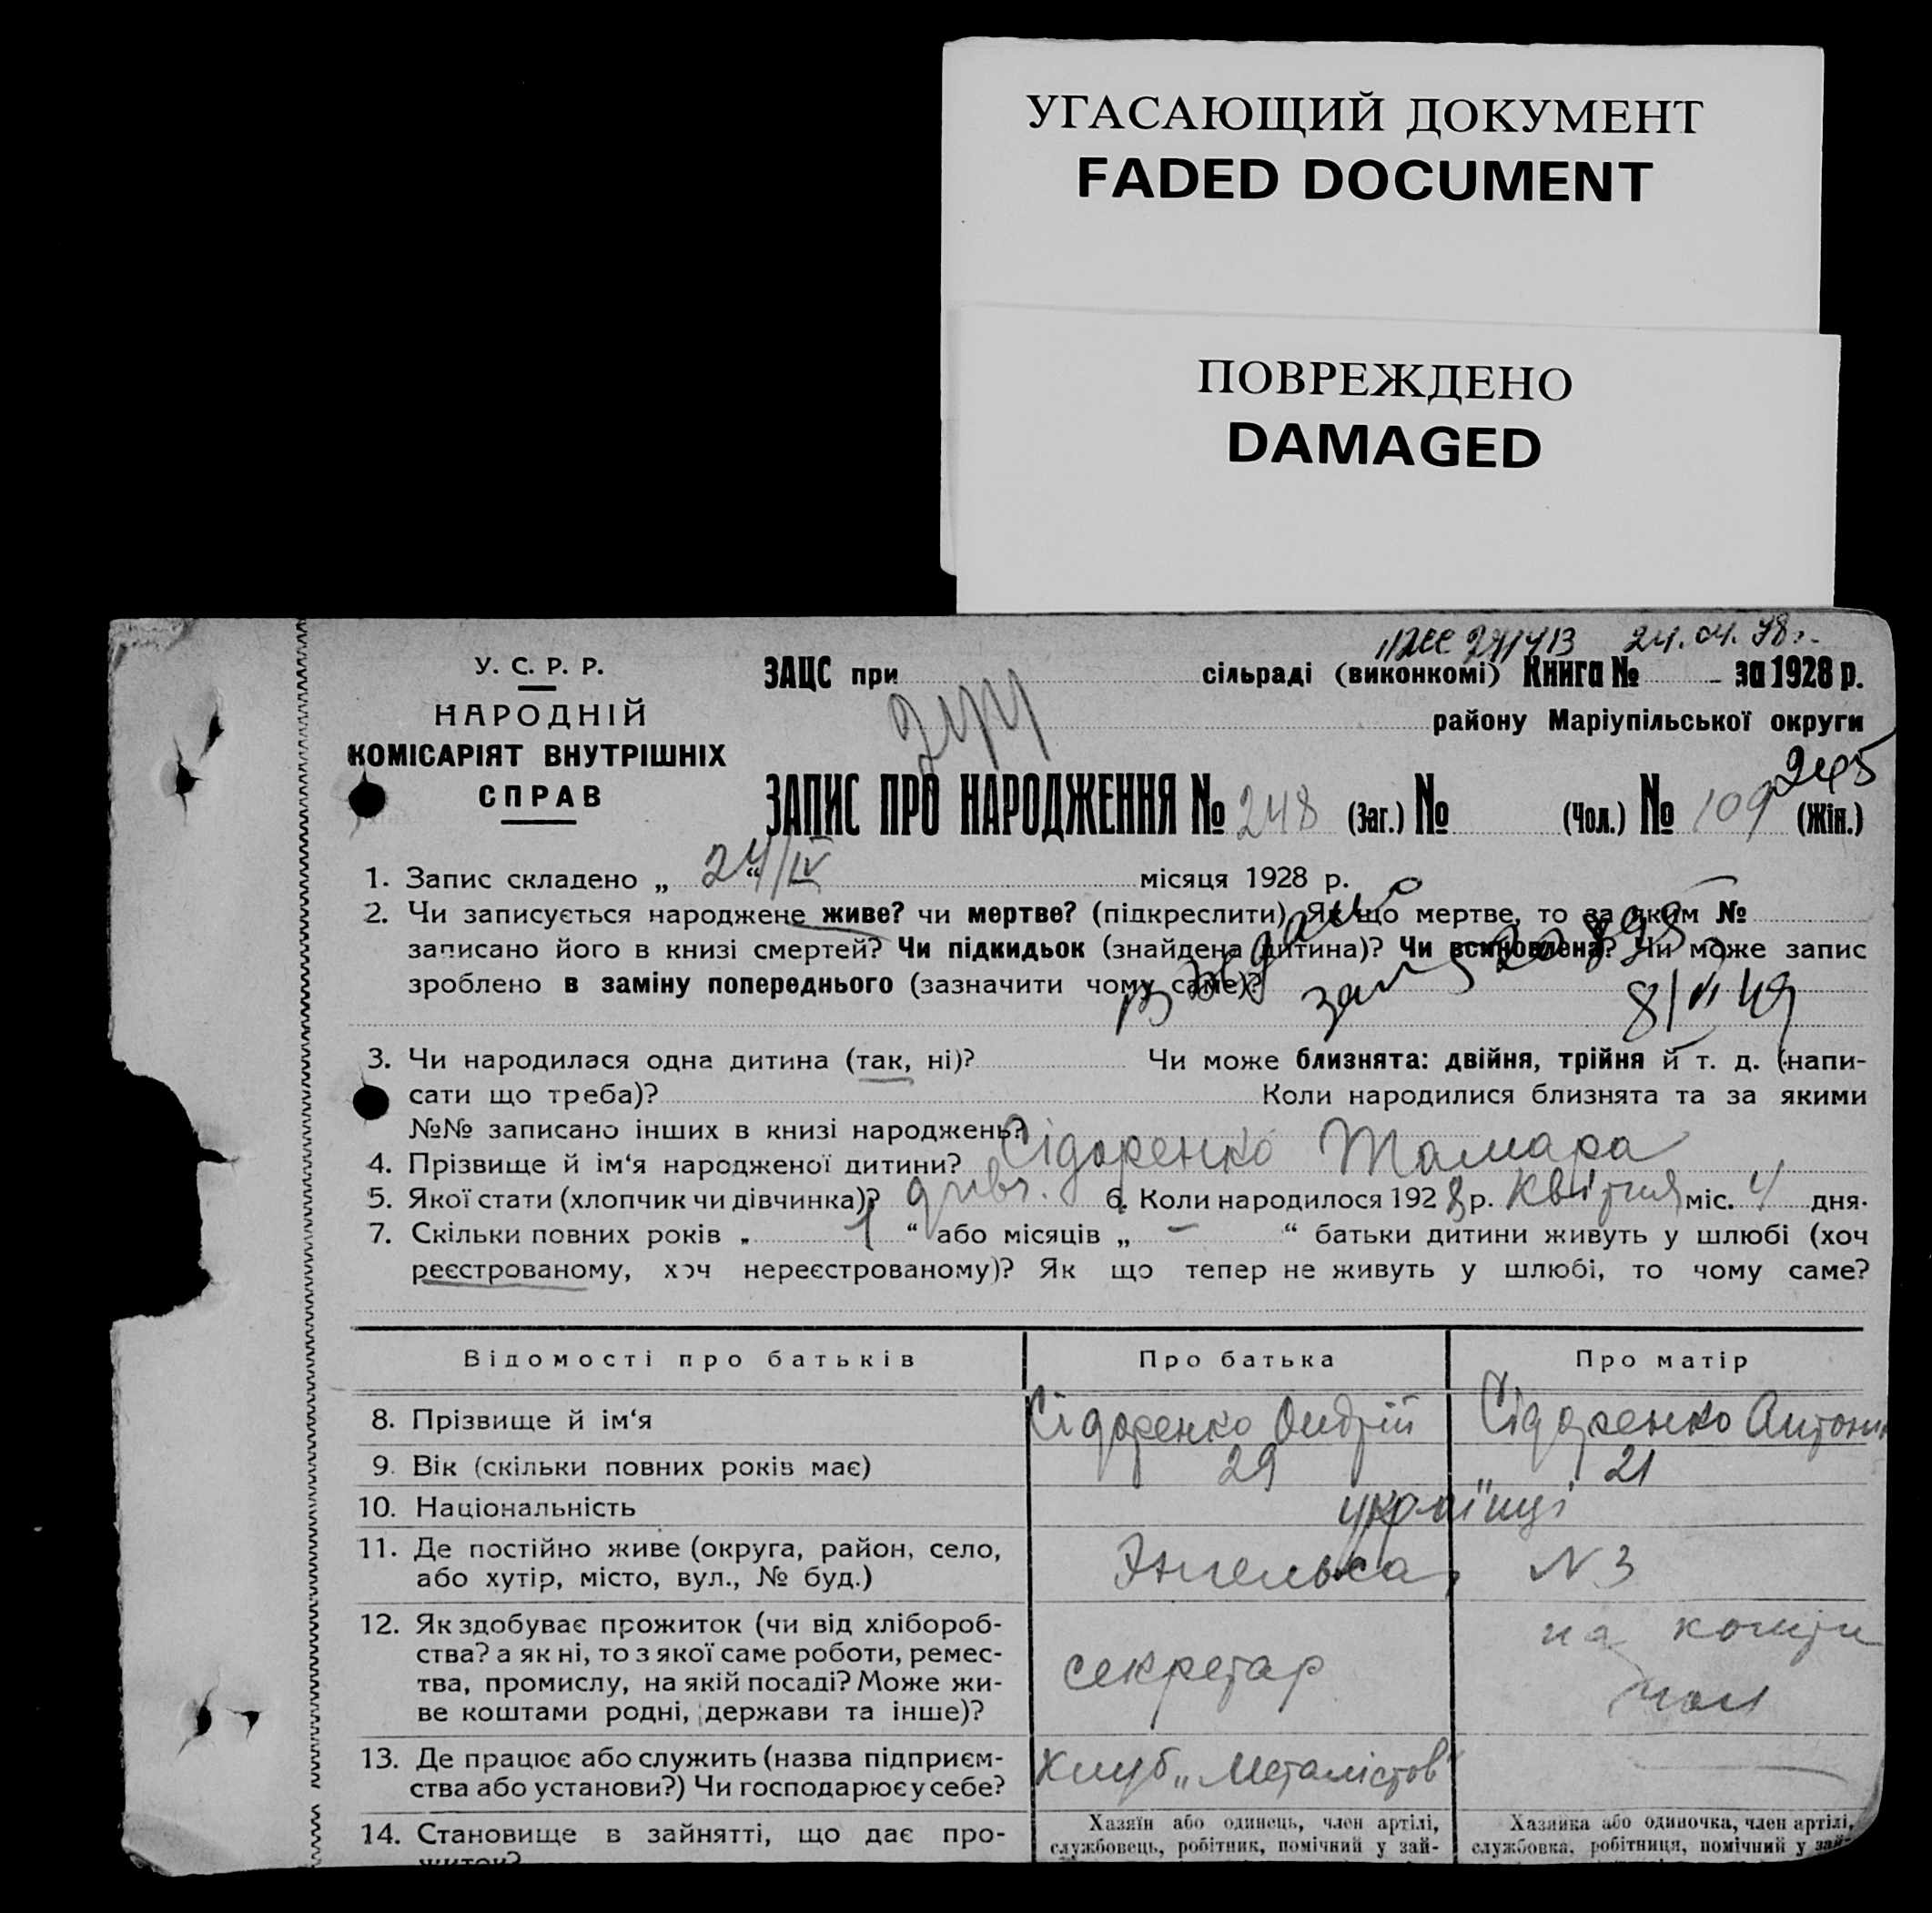 УГАСАЮЩИЙ ДОКУМЕНТ
FADED DOCUMENT
ПОВРЕЖДЕНО
DAMAGED
24.04.78
У. С. Р. Р.
НАРОДНІЙ
КОМІСАРІЯТ ВНУТРІШНІХ
СПРАВ
ЗАЦС при сільраді (виконкомі) Книга № за 1928 р.
району Маріупільської округи
245
ЗАПИС ПРО НАРОДЖЕННЯ № 248 (Заг.) № (Чол.) № 109 (Жін.)
1. Запис складено „ 24/IV “ місяця 1928 р.
2. Чи записується народжене живе? чи мертве? (підкреслити) Як що мертве, то за яким №
записано його в книзі смертей? Чи підкидьок (знайдена дитина)? Чи всиновлена? Чи може запис
зроблено в заміну попереднього (зазначити чому саме)?
3. Чи народилася одна дитина (так, ні)? Чи може близнята: двійня, трійня й т. д. (напи-
сати що треба)? Коли народилися близнята та за якими
№№ записано інших в книзі народжень?
4. Прізвище й ім‘я народженої дитини? Сідоренко Тамара
5. Якої стати (хлопчик чи дівчинка)? дивч. 6. Коли народилося 1928 р. Квітня міс. 4 дня.
7. Скільки повних років „ 1 “ або місяців „ – “ батьки дитини живуть у шлюбі (хоч
реєстрованому, хоч нереєстрованому)? Як що тепер не живуть у шлюбі, то чому саме?
Відомості про батьків Про батька Про матір
8. Прізвище й ім‘я Сідоренко Ондрій Сідоренко Антонін
9. Вік (скільки повних років має) 29 21
10. Національність українці
11. Де постійно живе (округа, район, село,
або хутір, місто, вул., № буд.) Энгельса, N 3
12. Як здобуває прожиток (чи від хлібороб-
ства? а як ні, то з якої саме роботи, ремес-
тва, промислу, на якій посаді? Може жи-
ве коштами родні, держави та інше)?
секретар
на кошти
чол
13. Де працює або служить (назва підприєм-
ства або установи?) Чи господарює у себе?
Клуб „Металістов“
14. Становище в зайнятті, що дає про-
житок?
Хазяїн або одинець, член артілі,
службовець, робітник, помічний у зай-
Хазяйка або одиночка, член артілі,
службовка, робітниця, помічний у зай-